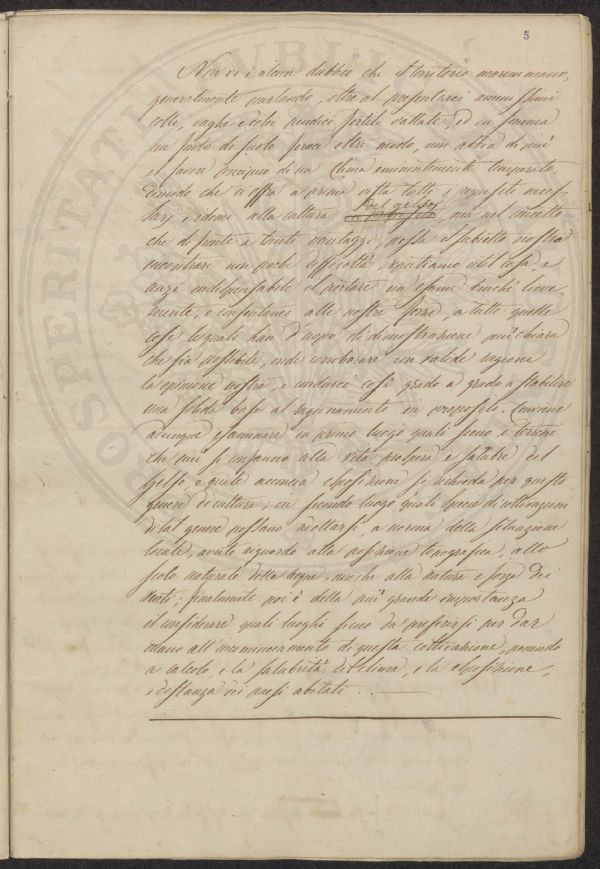 5
Non vi è alcun dubbio che il territorio maremmano,
generalmente parlando, oltre al presentarci amenissimi
colli, vaghe e dolci pendici fertili vallate, ed in somma
un fondo di suolo ferace oltre modo, non abbia di più
il favore precipuo di un Clima eminentemente temperato,
dimodo che ci offra a prima vista tutti i requisiti neces-
sarj e idonei alla cultura del gelso; ma nel concetto
che di fronte a tanti vantaggi possa il subietto nostro
incontrare non poche difficoltà, reputiamo util cosa, e
anzi indispensabile il portare un esame benchè lieve-
mente, e confortanci alle nostre forze, a tutte quelle
cose le quali han d'uopo di dimostrazione più chiara
che sia possibile, onde corroborare con valide ragioni
la opinione nostra, e condurci così grado a grado a stabilire
una solida base al ragionamento in proposito. Conviene
adunque esaminare in primo luogo quali sieno i terreni
che più si confanno alla vita prospera e salubre del
gelso e quale acconcia esposizione si richieda per questo
genere di cultura; in secondo luogo quali specie di coltivazioni
di tal genere possano adottarsi, a norma della situazione
locale, avuto riguardo alla posizione topografica, allo
scolo naturale delle Acque, anche alla natura e forza dei
Venti; finalmente poi è della più grande importanza
il considerare quali luoghi sieno da preferirsi per dar
mano all'incominciamento di questa coltivazione, ponendo
a calcolo, e la salubrità del clima, e la esposizione,
e distanza dei paesi abitati.
PROSPERITATI PUBLI